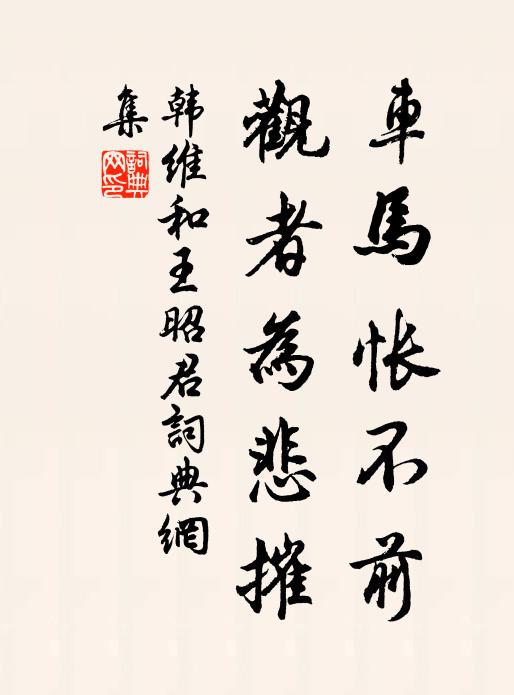 車馬悵不前
觀者為悲摧
韩維和王昭君詞典網
集
詞典
网印